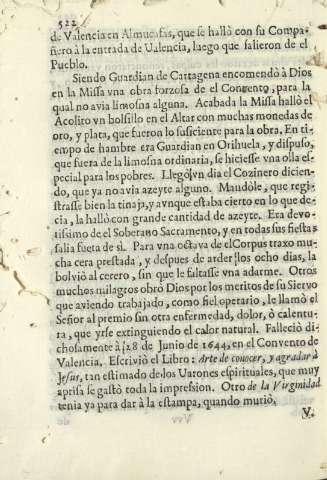 522
de Valencia en Almuçafas, que se hallò con su Compa-
ñero à la entrada de Valencia, luego que salieron de el
Pueblo.
Siendo Guardian de Cartagena encomendò à Dios
en la Missa vna obra forzosa de el Convento, para la
qual no avia limosna alguna. Acabada la Missa hallò el
Acolito vn bolsillo en el Altar con muchas monedas de
oro, y plata, que fueron lo suficiente para la obra. En ti-
empo de hambre era Guardian en Orihuela, y dispuso,
que fuera de la limosna ordinaria, se hiciesse vna olla es-
pecial para los pobres. Llegò vn dia el Cozinero dicien-
do, que ya no avia azeyte alguno. Mandòle, que regi-
strasse bien la tinaja, y aunque estaba cierto en lo que de-
cia, la hallò con grande cantidad de azeyte. Era devo-
tissimo de el Soberano Sacramento, y en todas sus fiestas
salia fuera de sì. Para vna octava de el Corpus traxo mu-
cha cera prestada, y despues de arder los ocho dias, la
bolviò al cerero, sin que le faltasse vna adarme. Otros
muchos milagros obrò Dios por los meritos de su Siervo
que aviendo trabajado, como fiel operario, le llamò el
Señor al premio sin otra enfermedad, dolor, ò calentu-
ra, que yrse extinguiendo el calor natural. Falleciò di-
chosamente à 28 de Junio de 1644, en el Convento de
Valencia. Escriviò el Libro: Arte de conocer, y agradar à
Jesus, tan estimado de los Varones espirituales, que muy
aprisa se gastò toda la impression. Otro de la Virginidad
tenia ya para dar à la estampa, quando muriò.
V.